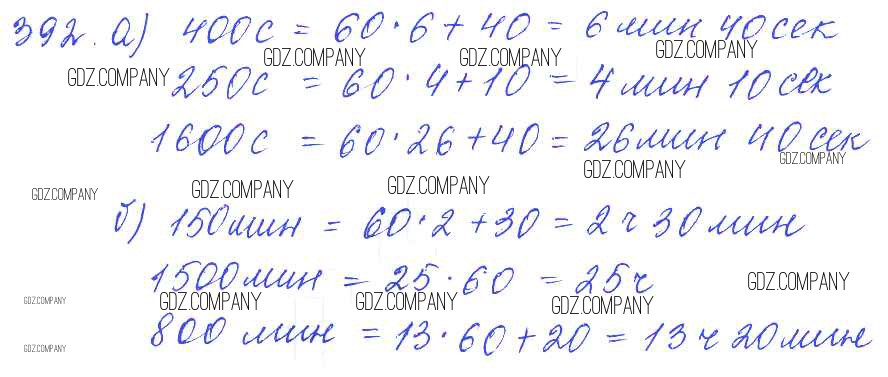 392. а) 400с = 60·6 + 40 = 6 мин 40 сек
GDZ.COMPANY GDZ.COMPANY GDZ.COMPANY
GDZ.COMPANY 250с = 60·4+10 = 4 мин 10 сек
1600с = 60·26+40 = 26 мин 40 сек
GDZ.COMPANY GDZ.COMPANY
GDZ.COMPANY GDZ.COMPANY GDZ.COMPANY
б) 150 мин = 60·2 +30 = 2 ч 30 мин
1500 мин = 25·60 = 25 ч
GDZ.COMPANY
GDZ.COMPANY GDZ.COMPANY GDZ.COMPANY GDZ.COMPANY
800 мин = 13·60+20 = 13 ч 20 мин
GDZ.COMPANY